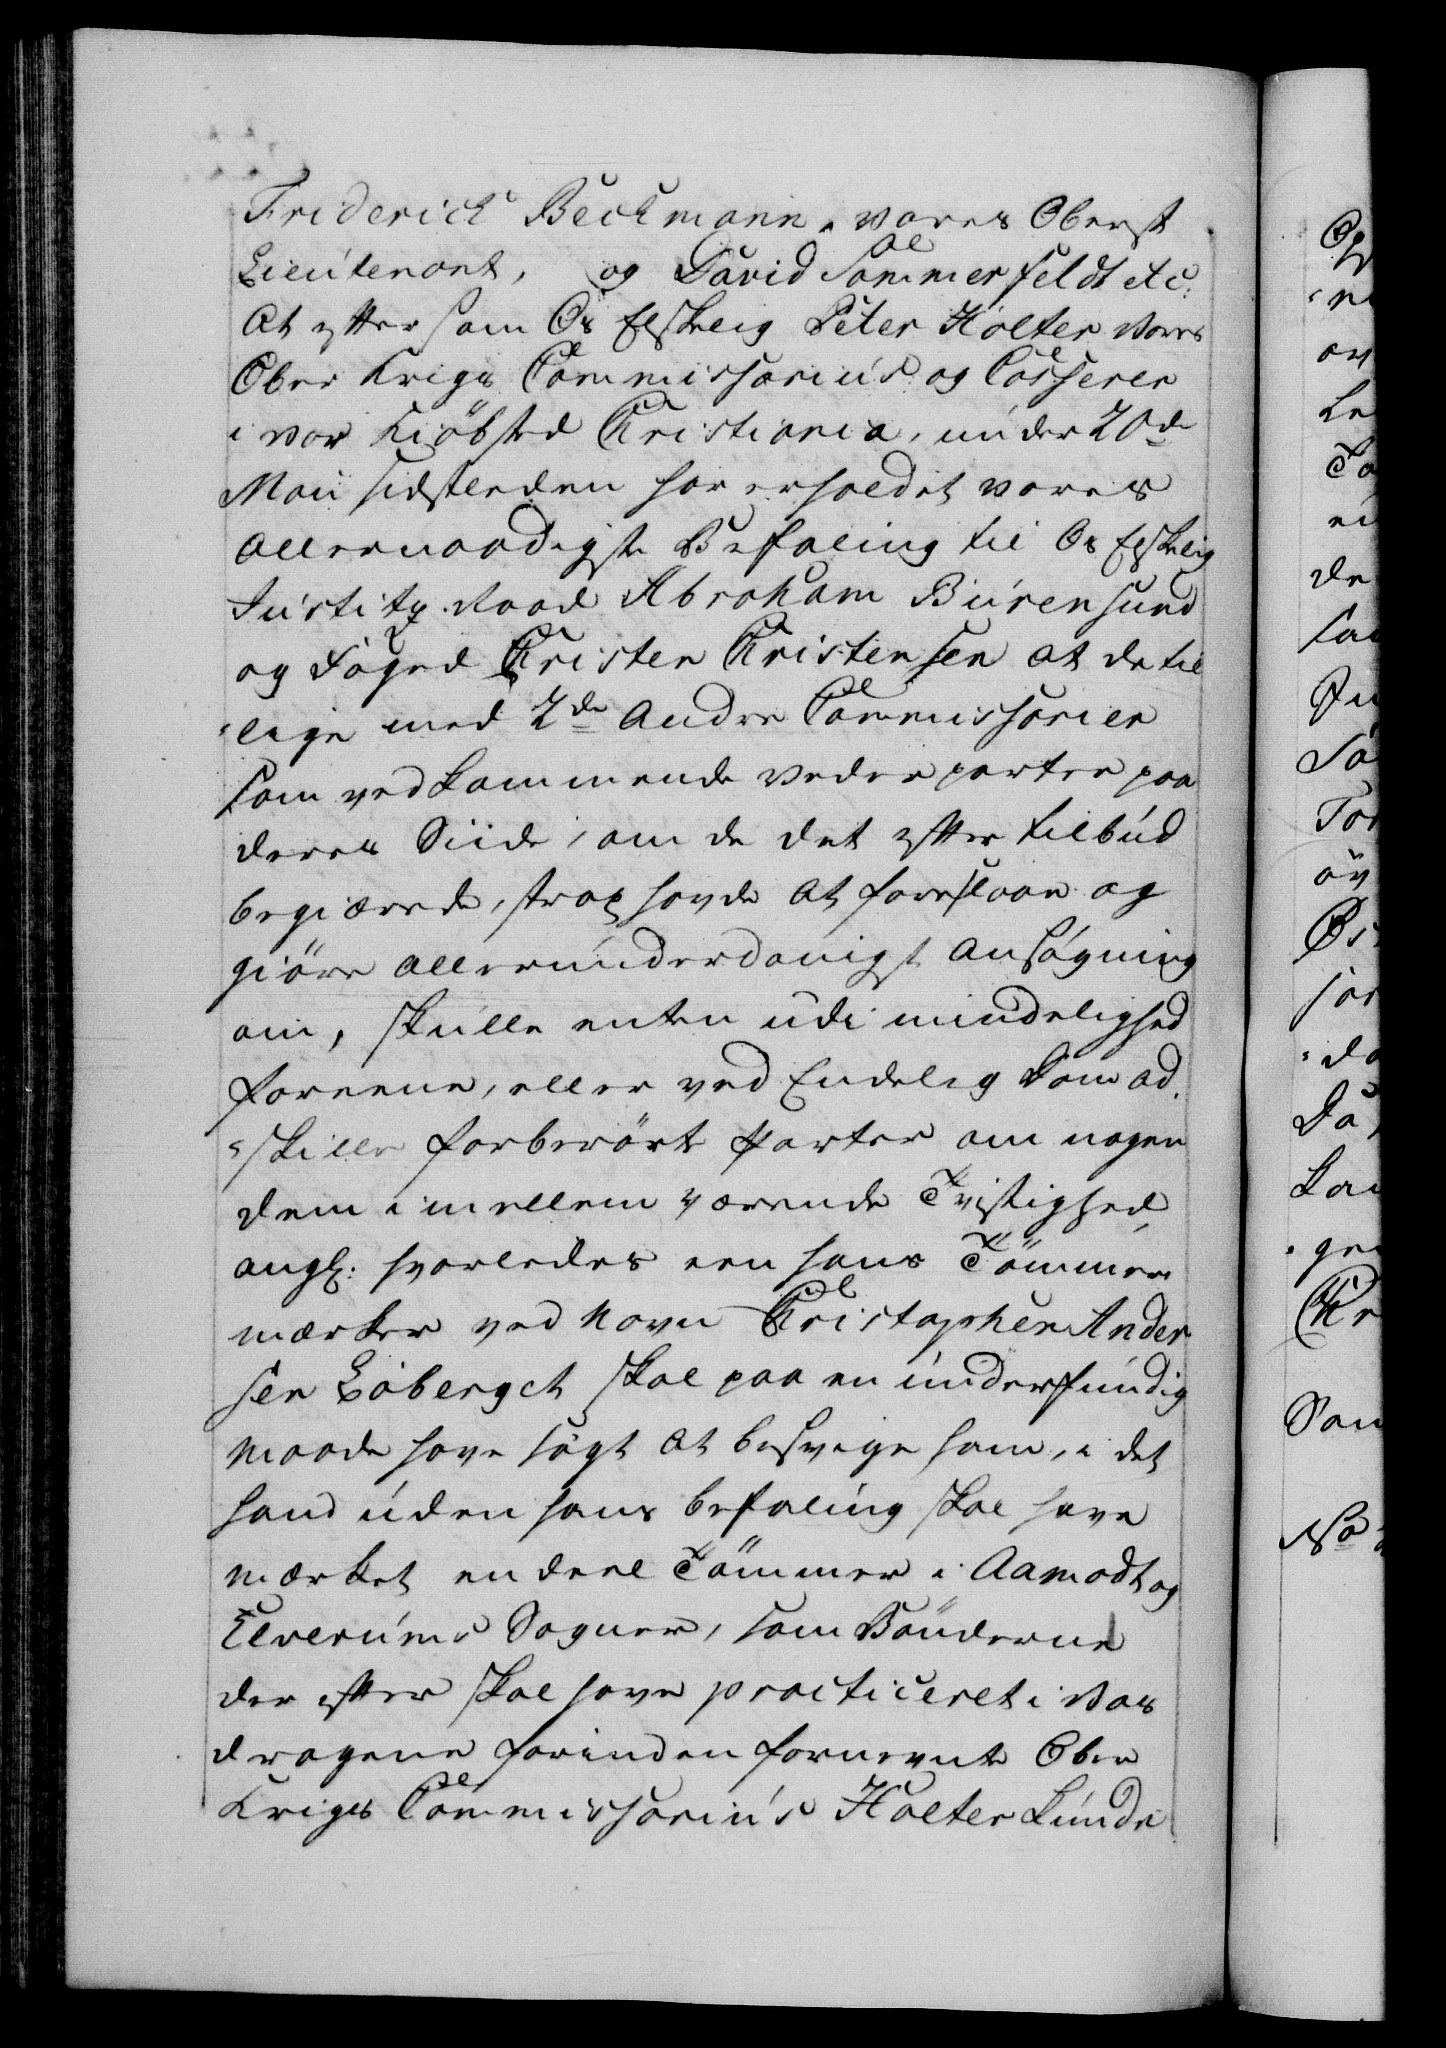 Friderich Beckmann, vores Oberst
Lieutenant, og David Sommerfeldt etc:
At efter som Os Elskelig Peter Holter Vores
Ober Krigs Commissarius og Casserer
i vor Kiöbsted Christiania, under 20de
Maii sidstleeden har erholdet vores
allernaadigste Befaling til Os Elskelig
Justitz Raad Abraham Bürensund
og Foged Christen Christensen at de til
lige med 2de Andre Commissarier
som vedkommende vederparter paa
deres Siide, om de det efter tilbud
begiærede, strax havde at foreslaae og
giöre allerunderdanigst Ansögning
om, skulle enten udi mindelighed
foreene, eller ved Endelig Dom ad,
skille forberörte Parter om nogen
dem imellem værende Tvistighed,
angl: hvorledes een hans Tömmer
mærker ved Navn Christopher Ander
sen Löberget skal paa en underfundig
Maade have sögt at besvige ham, i det
hand uden hans befaling skal have
mærket en deel Tömmer i Aamodt og
Elverums Sogner, som Bönderne
der efter skal have practiceret i Vas
dragene forinden fornevnte Ober
Krigs Commissarius Holter kunde